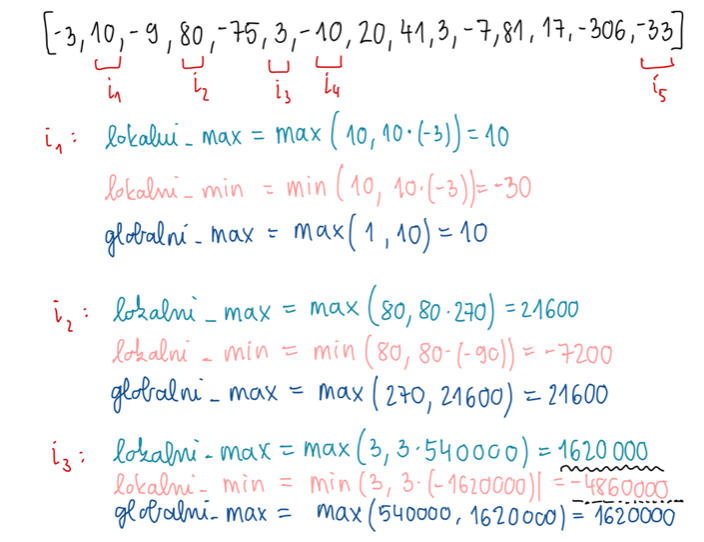 [-3, 10, -9, 80, -75, 3, -10, 20, 41, 3, -7, 81, 17, -306, -33]
i₁ i₂ i₃ i₄ i₅
i₁: lokalni_max = max(10, 10·(-3)) = 10
lokalni_min = min(10, 10·(-3)) = -30
globalni_max = max(1, 10) = 10
i₂: lokalni_max = max(80, 80·270) = 21600
lokalni_min = min(80, 80·(-90)) = -7200
globalni_max = max(270, 21600) = 21600
i₃: lokalni_max = max(3, 3·540000) = 1620000
lokalni_min = min(3, 3·(-1620000)) = -4860000
globalni_max = max(540000, 1620000) = 1620000